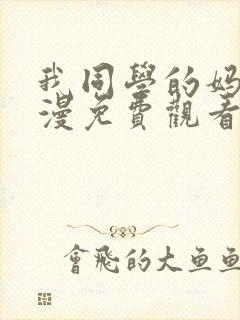 我同學的妈
漫免費觀看
會飛的大鱼鱼